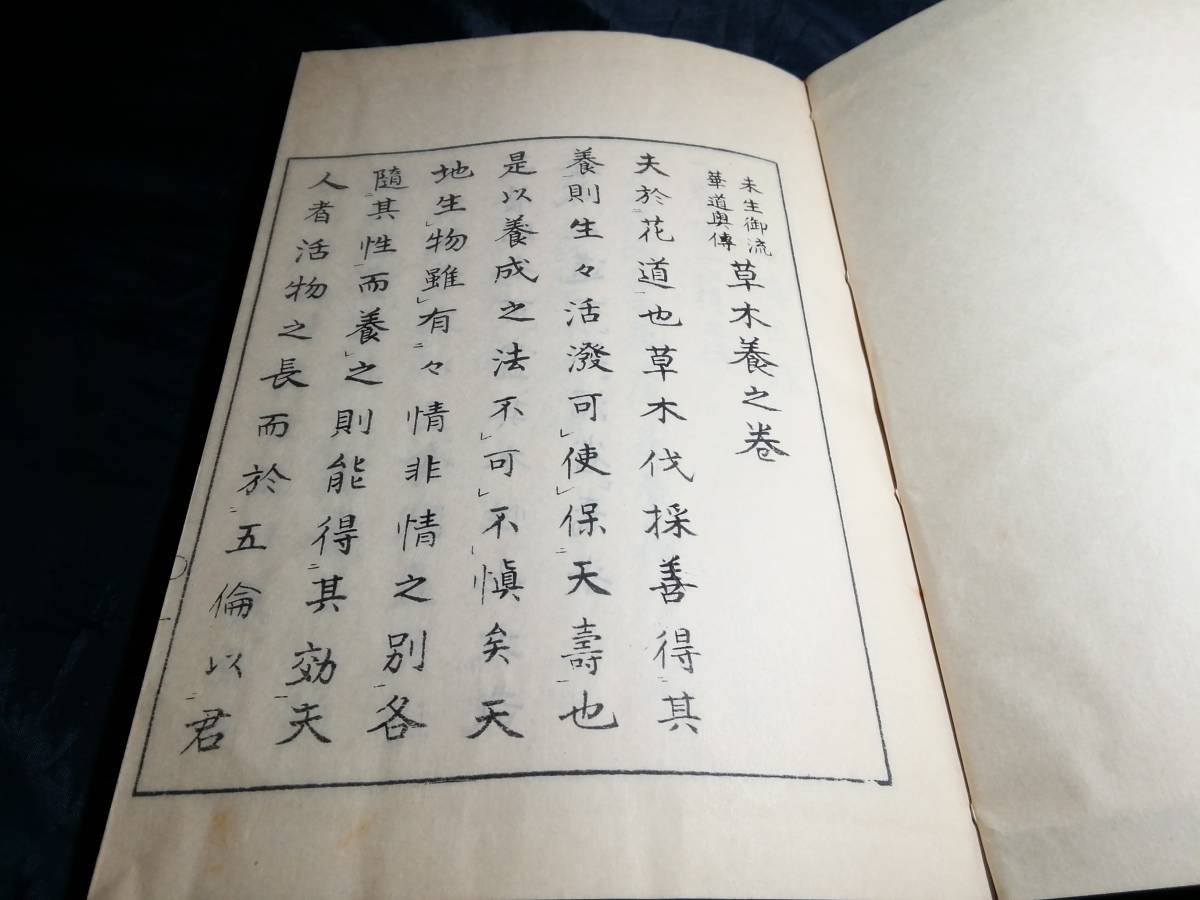 未生御流
華道奥傳
草木養之巻
夫於花道也草木伐採善得其
養則生々活潑可使保天壽也
是以養成之法不可不愼矣天
地生物雖有々情非情之別各
隨其性而養之則能得其効夫
人者活物之長而於五倫以君
一